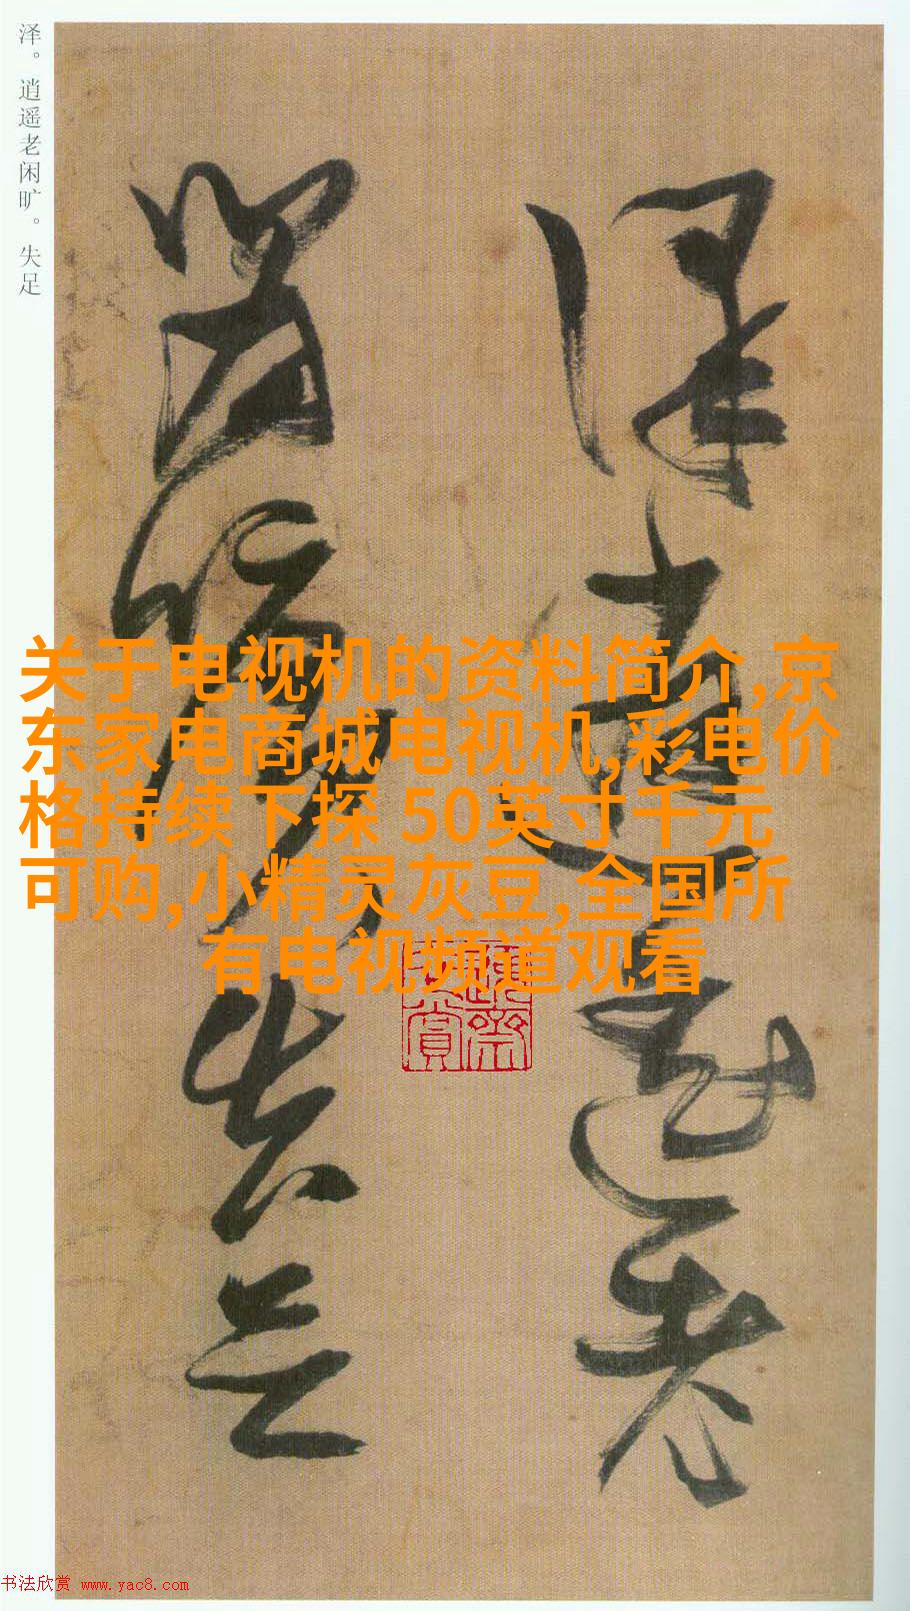 泽。逍遥老闲旷。失足
泽逍遥老
闲旷失足
关于电视机的资料简介,京
东家电商城电视机,彩电价
格持续下探 50英寸千元
可购,小精灵灰豆,全国所
有电视频道观看
书法欣赏 www.yac8.com